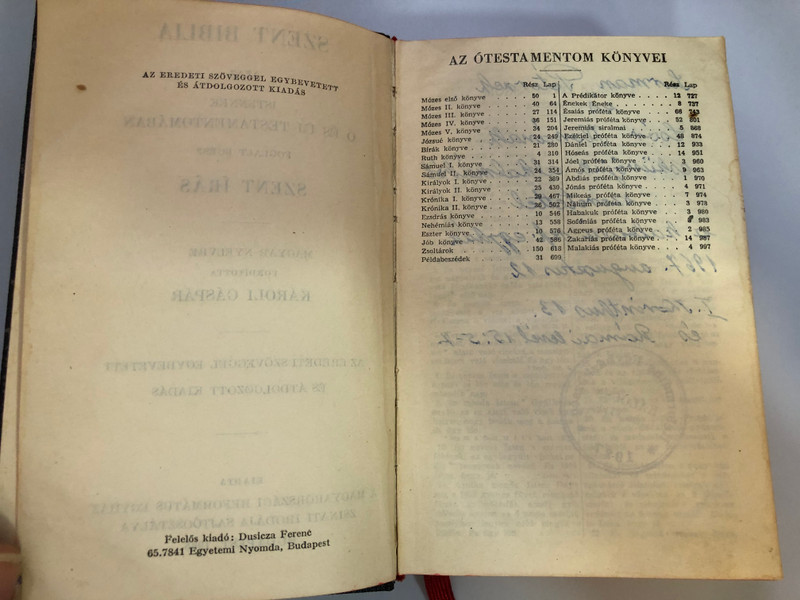 AZ EREDETI SZÖVEGGEL EGYBEVETETT
ÉS ÁTDOLGOZOTT KIADÁS
SZENT BIBLIA
ISTENNEK
Ó ÉS ÚJ TESTAMENTOMÁBAN
FOGLALT
SZENT ÍRÁS
MAGYAR NYELVRE
FORDÍTOTTA
KÁROLI GÁSPÁR
AZ EREDETI SZÖVEGGEL EGYBEVETETT
ÉS ÁTDOLGOZOTT KIADÁS
KIADJA
A MAGYARORSZÁGI REFORMÁTUS EGYHÁZ
ZSINATI IRODÁJA SAJTÓOSZTÁLYA
Felelős kiadó: Dusicza Ferenc
65.7841 Egyetemi Nyomda, Budapest
AZ ÓTESTAMENTOM KÖNYVEI
Rész Lap
Mózes első könyve . . . . . 50 1
Mózes II. könyve . . . . . 40 64
Mózes III. könyve . . . . . 27 114
Mózes IV. könyve . . . . . 36 151
Mózes V. könyve . . . . . 34 204
Józsué könyve . . . . . 24 249
Bírák könyve . . . . . 21 280
Ruth könyve . . . . . 4 310
Sámuel I. könyve . . . . . 31 314
Sámuel II. könyve . . . . . 24 354
Királyok I. könyve . . . . . 22 389
Királyok II. könyve . . . . . 25 430
Krónika I. könyve . . . . . 29 467
Krónika II. könyve . . . . . 36 502
Ezsdrás könyve . . . . . 10 546
Nehémiás könyve . . . . . 13 558
Eszter könyve . . . . . 10 576
Jób könyve . . . . . 42 586
Zsoltárok . . . . . 150 618
Példabeszédek . . . . . 31 699
Rész Lap
A Prédikátor könyve . . . . 12 727
Énekek Éneke . . . . 8 737
Ésaiás próféta könyve . . . . 66 743
Jeremiás próféta könyve . . . . 52 801
Jeremiás siralmai . . . . 5 868
Ezékiel próféta könyve . . . . 48 874
Dániel próféta könyve . . . . 12 933
Hóseás próféta könyve . . . . 14 951
Jóel próféta könyve . . . . 3 960
Ámós próféta könyve . . . . 9 963
Abdiás próféta könyve . . . . 1 970
Jónás próféta könyve . . . . 4 971
Mikeás próféta könyve . . . . 7 974
Náhum próféta könyve . . . . 3 978
Habakuk próféta könyve . . . . 3 980
Sofóniás próféta könyve . . . . 3 983
Aggeus próféta könyve . . . . 2 985
Zakariás próféta könyve . . . . 14 987
Malakiás próféta könyve . . . . 4 997
1967. augusztus 12
I. Korinthus 13.
és Római levél 15: 5-7.